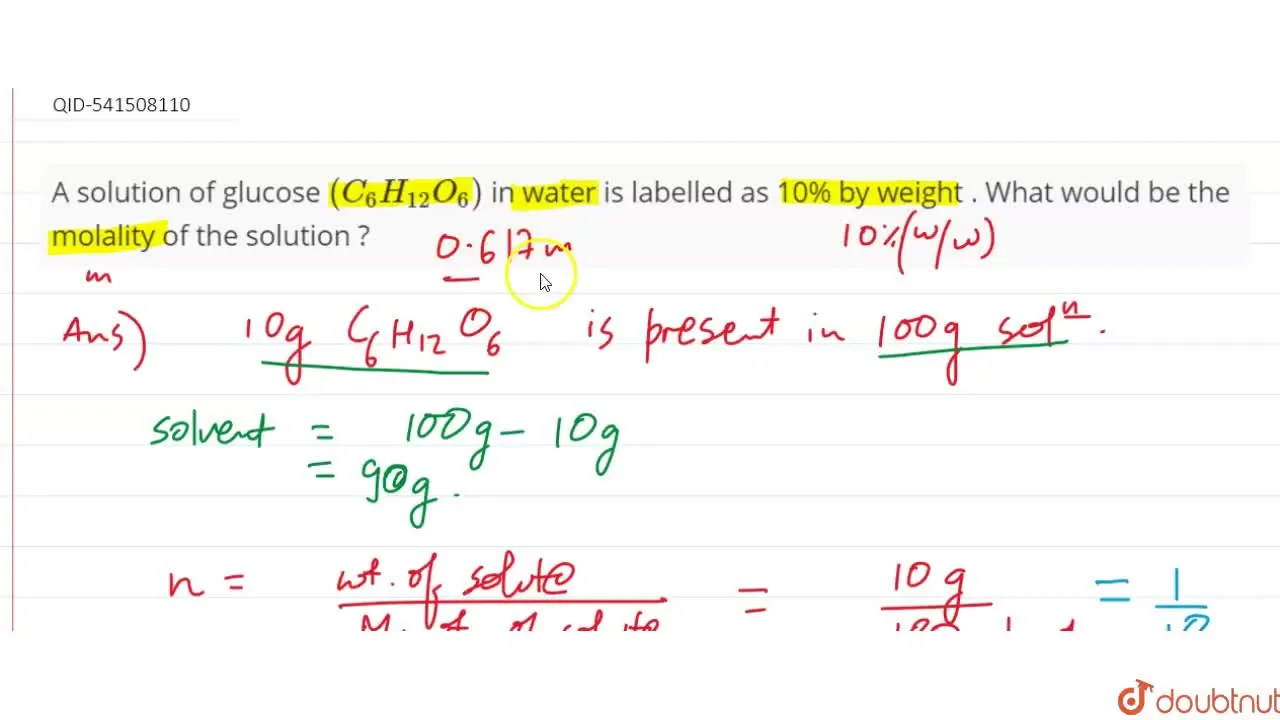 QID-541508110
A solution of glucose (C₆H₁₂O₆) in water is labelled as 10% by weight . What would be the
molality of the solution ?
0.617m 10%(w/w)
m
Ans) 10g C₆H₁₂O₆ is present in 100g solⁿ.
solvent = 100g – 10g
= 90g.
n = wt. of solute = 10 g = 1
doubtnut